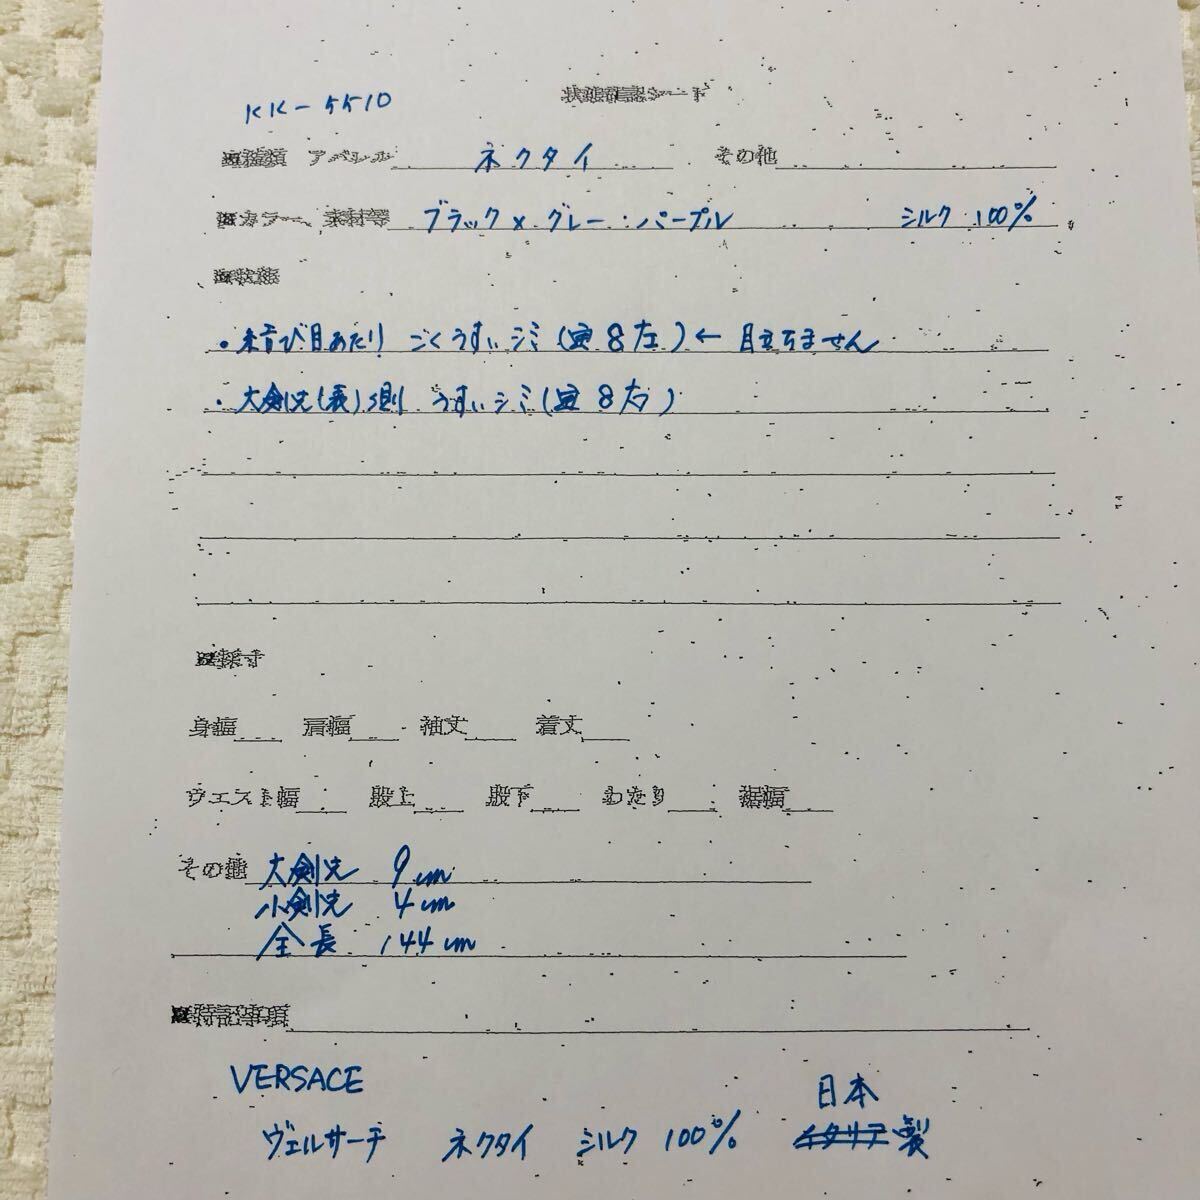 KK-5510
状態確認シート
■種類 アパレル ネクタイ その他
■カラー、素材等 ブラック×グレー:パープル シルク 100%
■状態
・結び目あたり ごくうすいシミ(画8左)← 目立ちません
・大剣先(表)側 うすいシミ(画8右)
■採寸
身幅 肩幅 袖丈 着丈
ウエスト幅 股上 股下 わたり 裾幅
その他 大剣先 9cm
小剣先 4cm
全長 144cm
■特記事項
VERSACE
日本
ヴェルサーチ ネクタイ シルク 100% イタリア製